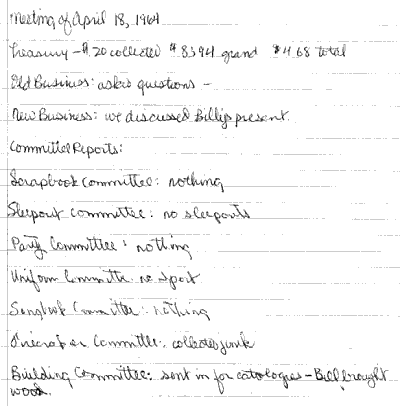 Meeting of April 18, 1964
Treasury - $.20 collected $ 8394 grand $4.68 total
Old Business: asks questions -
New Business: we discussed Billys present.
Committee Reports:
Scrapbook Committee: nothing
Sleepout committee: no sleepouts
Party Committee: nothing
Uniform Committe: no report
Songbook Committee: nothing
Committee: collected junk
Building Committee: sent in for catologies - Bill brought
wood.